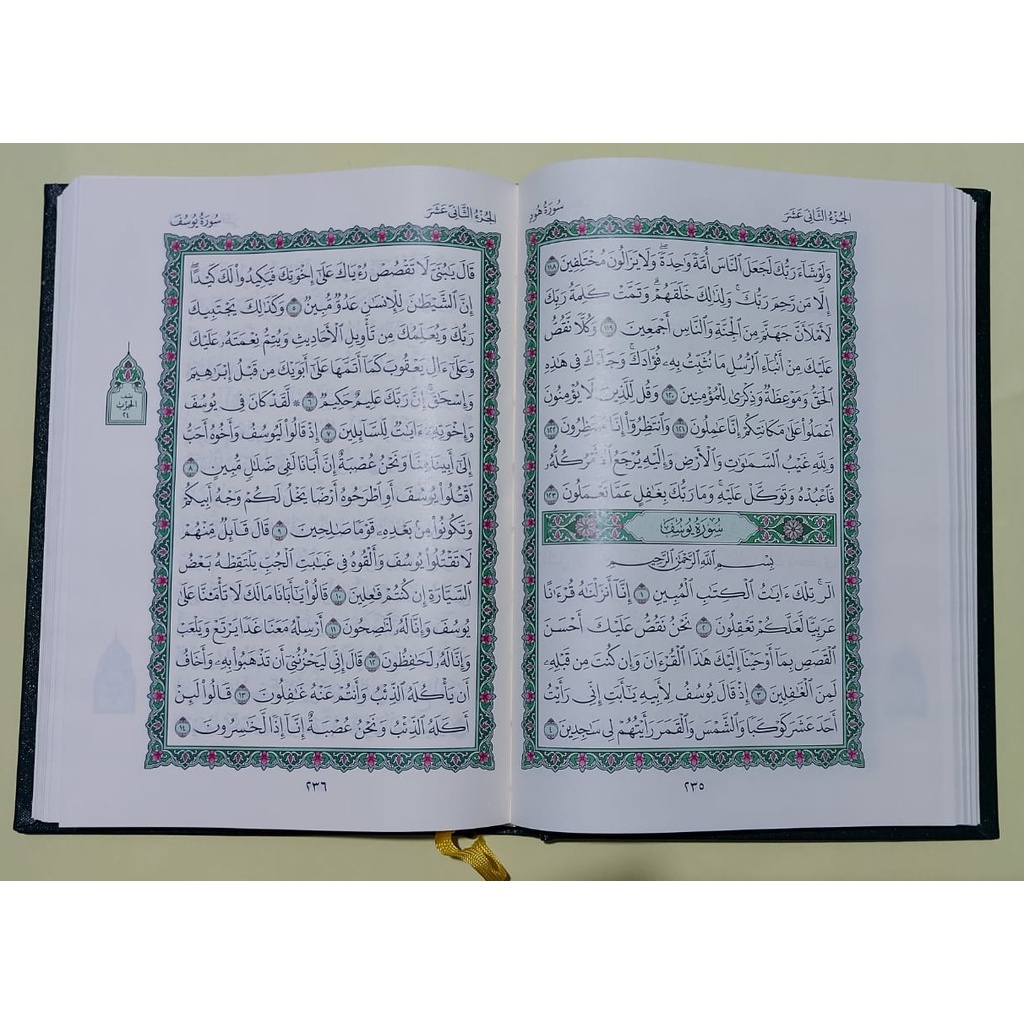 الجزء الثاني عشر
سورة هود
وَلَوْ شَآءَ رَبُّكَ لَجَعَلَ ٱلنَّاسَ أُمَّةً وَٰحِدَةً ۖ وَلَا يَزَالُونَ مُخْتَلِفِينَ ١١٨
إِلَّا مَن رَّحِمَ رَبُّكَ ۚ وَلِذَٰلِكَ خَلَقَهُمْ ۗ وَتَمَّتْ كَلِمَةُ رَبِّكَ
لَأَمْلَأَنَّ جَهَنَّمَ مِنَ ٱلْجِنَّةِ وَٱلنَّاسِ أَجْمَعِينَ ١١٩ وَكُلًّا نَّقُصُّ
عَلَيْكَ مِنْ أَنۢبَآءِ ٱلرُّسُلِ مَا نُثَبِّتُ بِهِۦ فُؤَادَكَ ۚ وَجَآءَكَ فِى هَٰذِهِ
ٱلْحَقُّ وَمَوْعِظَةٌ وَذِكْرَىٰ لِلْمُؤْمِنِينَ ١٢٠ وَقُل لِّلَّذِينَ لَا يُؤْمِنُونَ
ٱعْمَلُوا۟ عَلَىٰ مَكَانَتِكُمْ إِنَّا عَٰمِلُونَ ١٢١ وَٱنتَظِرُوٓا۟ إِنَّا مُنتَظِرُونَ ١٢٢
وَلِلَّهِ غَيْبُ ٱلسَّمَٰوَٰتِ وَٱلْأَرْضِ وَإِلَيْهِ يُرْجَعُ ٱلْأَمْرُ كُلُّهُۥ
فَٱعْبُدْهُ وَتَوَكَّلْ عَلَيْهِ ۚ وَمَا رَبُّكَ بِغَٰفِلٍ عَمَّا تَعْمَلُونَ ١٢٣
سورة يوسف
بِسْمِ ٱللَّهِ ٱلرَّحْمَٰنِ ٱلرَّحِيمِ
الٓر ۚ تِلْكَ ءَايَٰتُ ٱلْكِتَٰبِ ٱلْمُبِينِ ١ إِنَّآ أَنزَلْنَٰهُ قُرْءَٰنًا
عَرَبِيًّا لَّعَلَّكُمْ تَعْقِلُونَ ٢ نَحْنُ نَقُصُّ عَلَيْكَ أَحْسَنَ
ٱلْقَصَصِ بِمَآ أَوْحَيْنَآ إِلَيْكَ هَٰذَا ٱلْقُرْءَانَ وَإِن كُنتَ مِن قَبْلِهِۦ
لَمِنَ ٱلْغَٰفِلِينَ ٣ إِذْ قَالَ يُوسُفُ لِأَبِيهِ يَٰٓأَبَتِ إِنِّى رَأَيْتُ
أَحَدَ عَشَرَ كَوْكَبًا وَٱلشَّمْسَ وَٱلْقَمَرَ رَأَيْتُهُمْ لِى سَٰجِدِينَ ٤
٢٣٥
الجزء الثاني عشر
سورة يوسف
قَالَ يَٰبُنَىَّ لَا تَقْصُصْ رُءْيَاكَ عَلَىٰٓ إِخْوَتِكَ فَيَكِيدُوا۟ لَكَ كَيْدًا ۖ
إِنَّ ٱلشَّيْطَٰنَ لِلْإِنسَٰنِ عَدُوٌّ مُّبِينٌ ٥ وَكَذَٰلِكَ يَجْتَبِيكَ
رَبُّكَ وَيُعَلِّمُكَ مِن تَأْوِيلِ ٱلْأَحَادِيثِ وَيُتِمُّ نِعْمَتَهُۥ عَلَيْكَ
وَعَلَىٰٓ ءَالِ يَعْقُوبَ كَمَآ أَتَمَّهَا عَلَىٰٓ أَبَوَيْكَ مِن قَبْلُ إِبْرَٰهِيمَ
وَإِسْحَٰقَ ۚ إِنَّ رَبَّكَ عَلِيمٌ حَكِيمٌ ٦ ۞ لَّقَدْ كَانَ فِى يُوسُفَ
وَإِخْوَتِهِۦٓ ءَايَٰتٌ لِّلسَّآئِلِينَ ٧ إِذْ قَالُوا۟ لَيُوسُفُ وَأَخُوهُ أَحَبُّ
إِلَىٰٓ أَبِينَا مِنَّا وَنَحْنُ عُصْبَةٌ إِنَّ أَبَانَا لَفِى ضَلَٰلٍ مُّبِينٍ ٨
ٱقْتُلُوا۟ يُوسُفَ أَوِ ٱطْرَحُوهُ أَرْضًا يَخْلُ لَكُمْ وَجْهُ أَبِيكُمْ
وَتَكُونُوا۟ مِنۢ بَعْدِهِۦ قَوْمًا صَٰلِحِينَ ٩ قَالَ قَآئِلٌ مِّنْهُمْ
لَا تَقْتُلُوا۟ يُوسُفَ وَأَلْقُوهُ فِى غَيَٰبَتِ ٱلْجُبِّ يَلْتَقِطْهُ بَعْضُ
ٱلسَّيَّارَةِ إِن كُنتُمْ فَٰعِلِينَ ١٠ قَالُوا۟ يَٰٓأَبَانَا مَا لَكَ لَا تَأْمَ۫نَّا عَلَىٰ
يُوسُفَ وَإِنَّا لَهُۥ لَنَٰصِحُونَ ١١ أَرْسِلْهُ مَعَنَا غَدًا يَرْتَعْ وَيَلْعَبْ
وَإِنَّا لَهُۥ لَحَٰفِظُونَ ١٢ قَالَ إِنِّى لَيَحْزُنُنِىٓ أَن تَذْهَبُوا۟ بِهِۦ وَأَخَافُ
أَن يَأْكُلَهُ ٱلذِّئْبُ وَأَنتُمْ عَنْهُ غَٰفِلُونَ ١٣ قَالُوا۟ لَئِنْ
أَكَلَهُ ٱلذِّئْبُ وَنَحْنُ عُصْبَةٌ إِنَّآ إِذًا لَّخَٰسِرُونَ ١٤
الحزب
٢٤
٢٣٦